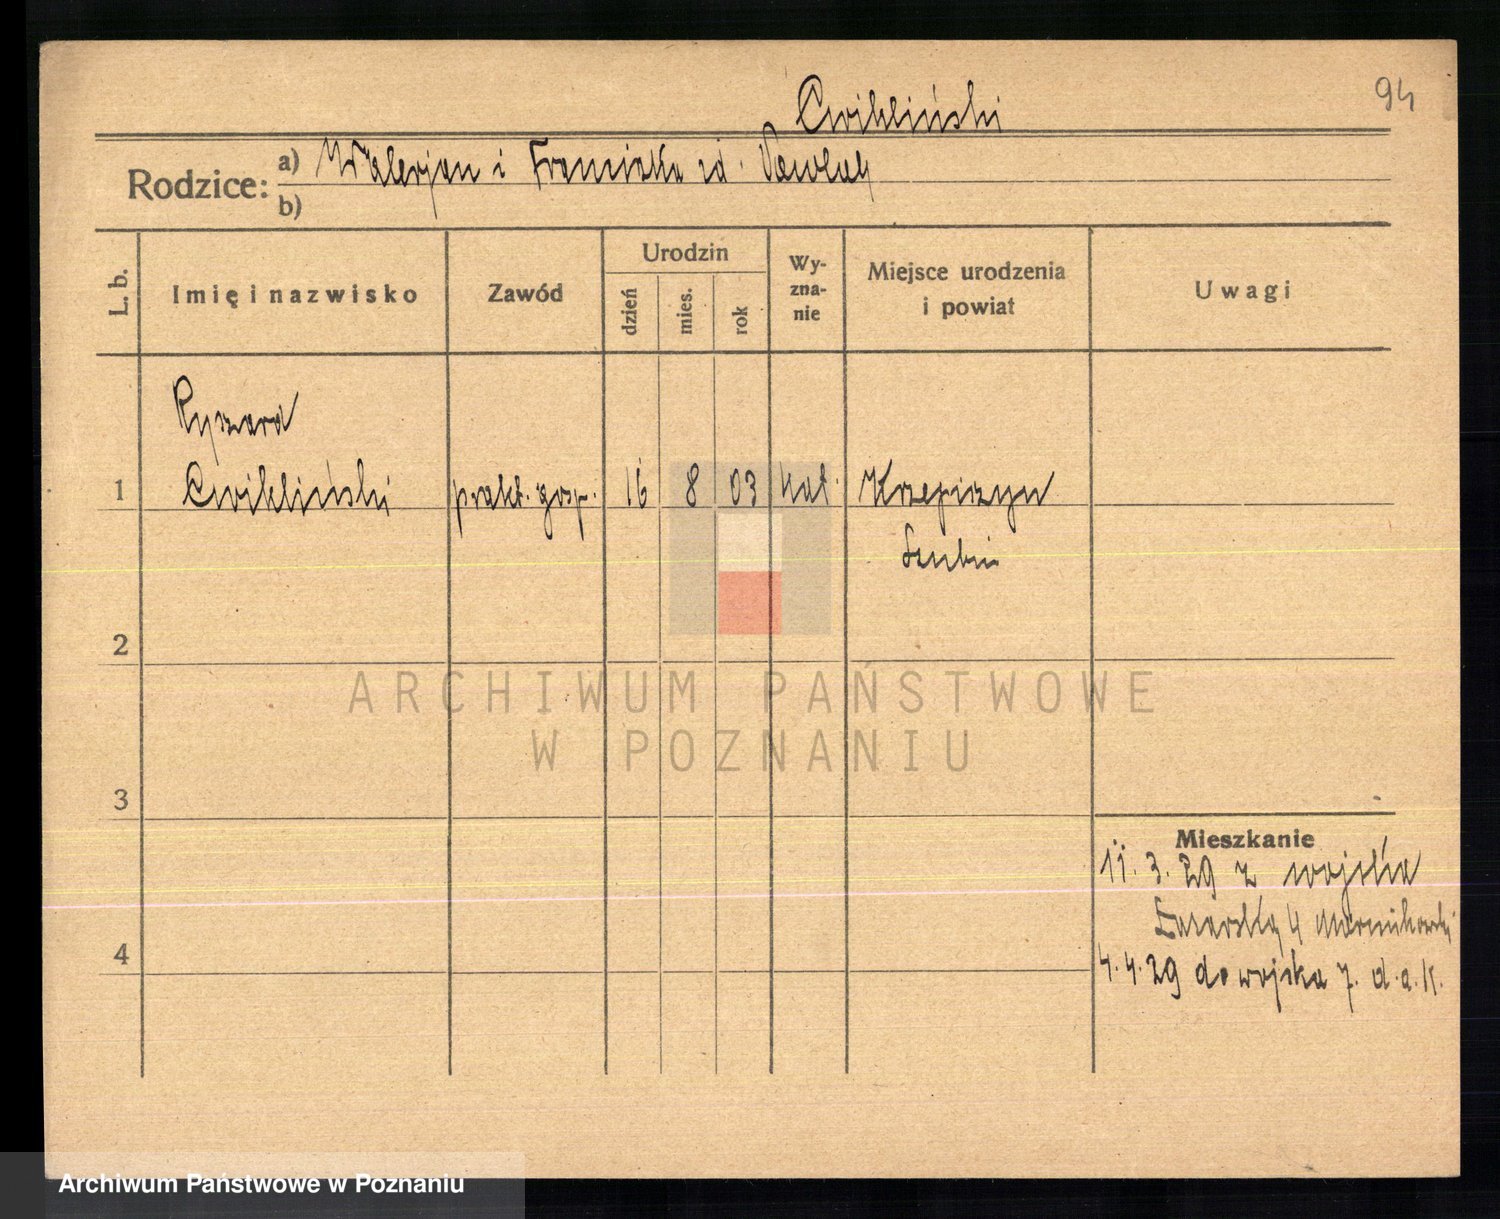 94
Ćwikliński
Rodzice: a) Walerjan i Franciszka zd.
b)
L. b. Imię i nazwisko Zawód Urodzin dzień mies. rok Wyznanie Miejsce urodzenia i powiat Uwagi
Ryszard
1 Ćwikliński prakt. gosp. 16 8 03 kat.
Szubin
2
ARCHIWUM PAŃSTWOWE
W POZNANIU
3
Mieszkanie
11. 3. 29 z wojska
Łazarska 4
4
4.4.29 do wojska 7. d.a.K.
Archiwum Państwowe w Poznaniu